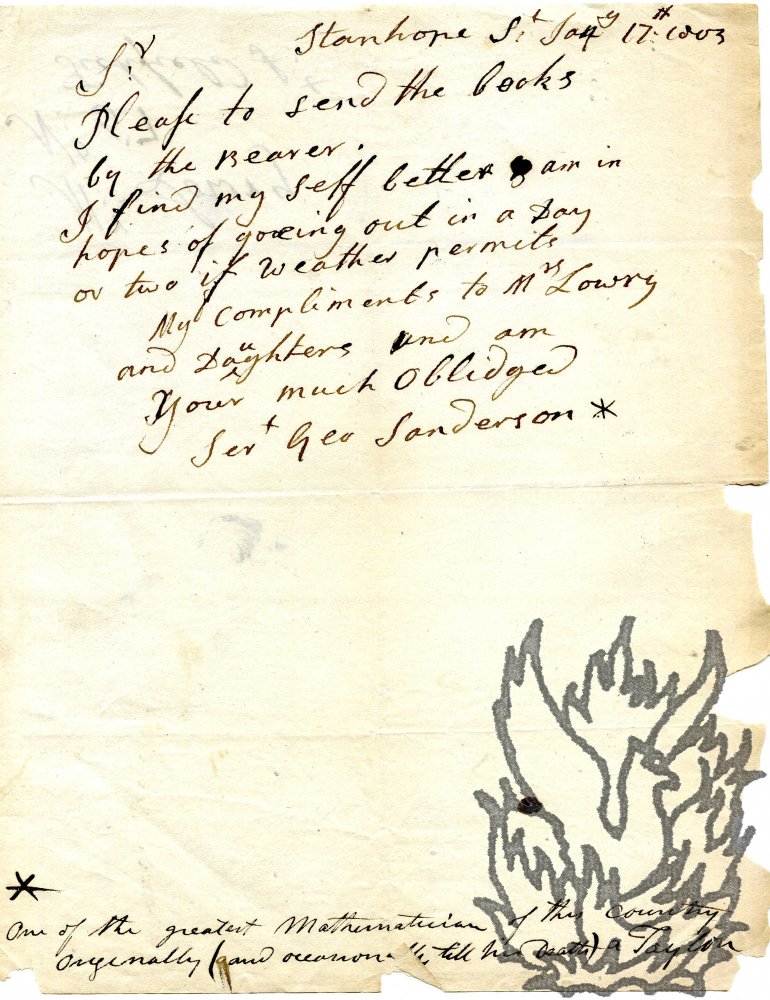 Stanhope St Jany 17th 1803
Sr
Please to send the books
by the Bearer.
I find my self better & am in
hopes of goeing out in a Day
or two if weather permits
My Compliments to Mrs Lowry
and Daughters and am
Your much Oblidged
Sert Geo Sanderson *
*
One of the greatest Mathematician of this Country
Originally (and occasionally till his Death) a Taylor